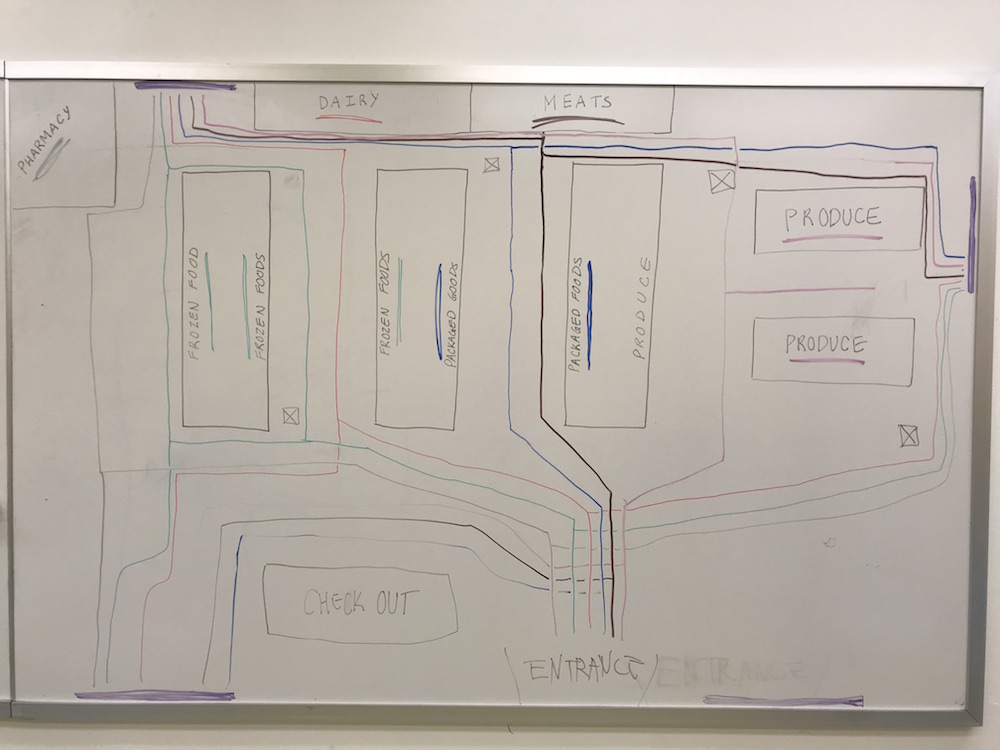 PHARMACY
DAIRY
MEATS
PRODUCE
FROZEN FOOD
FROZEN FOODS
FROZEN FOODS
PACKAGED GOODS
PACKAGED FOODS
PRODUCE
PRODUCE
CHECK OUT
ENTRANCE
ENTRANCE